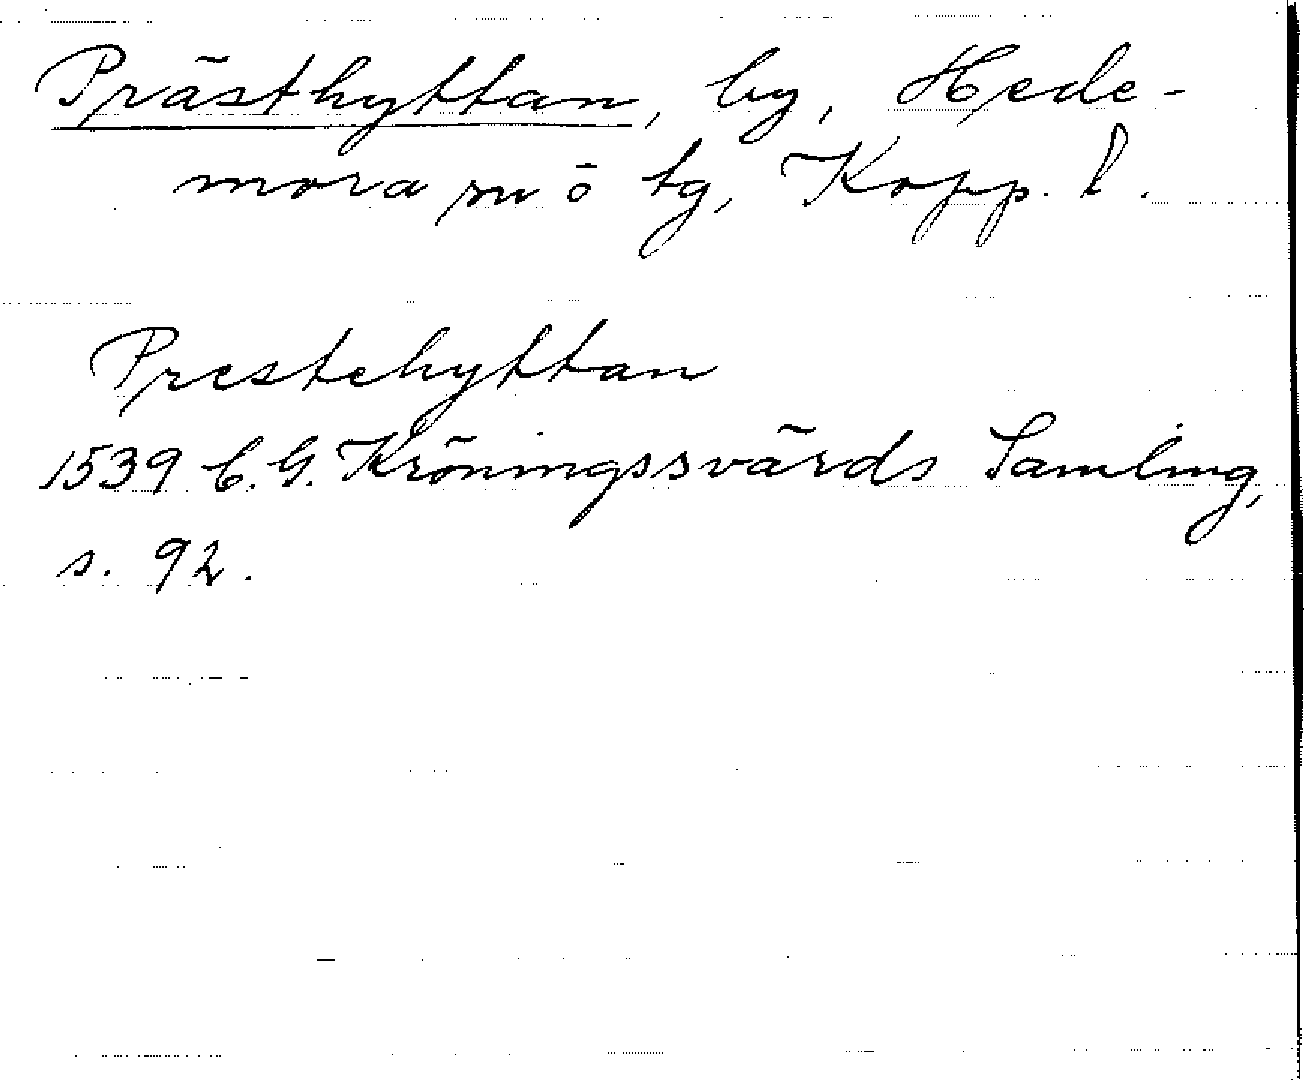 Prästhyttan, by, Hede-
mora sn ö tg, Kopp. l.
Prestehyttan
1539 C. G. Kröningssvärds Samling,
s. 92.